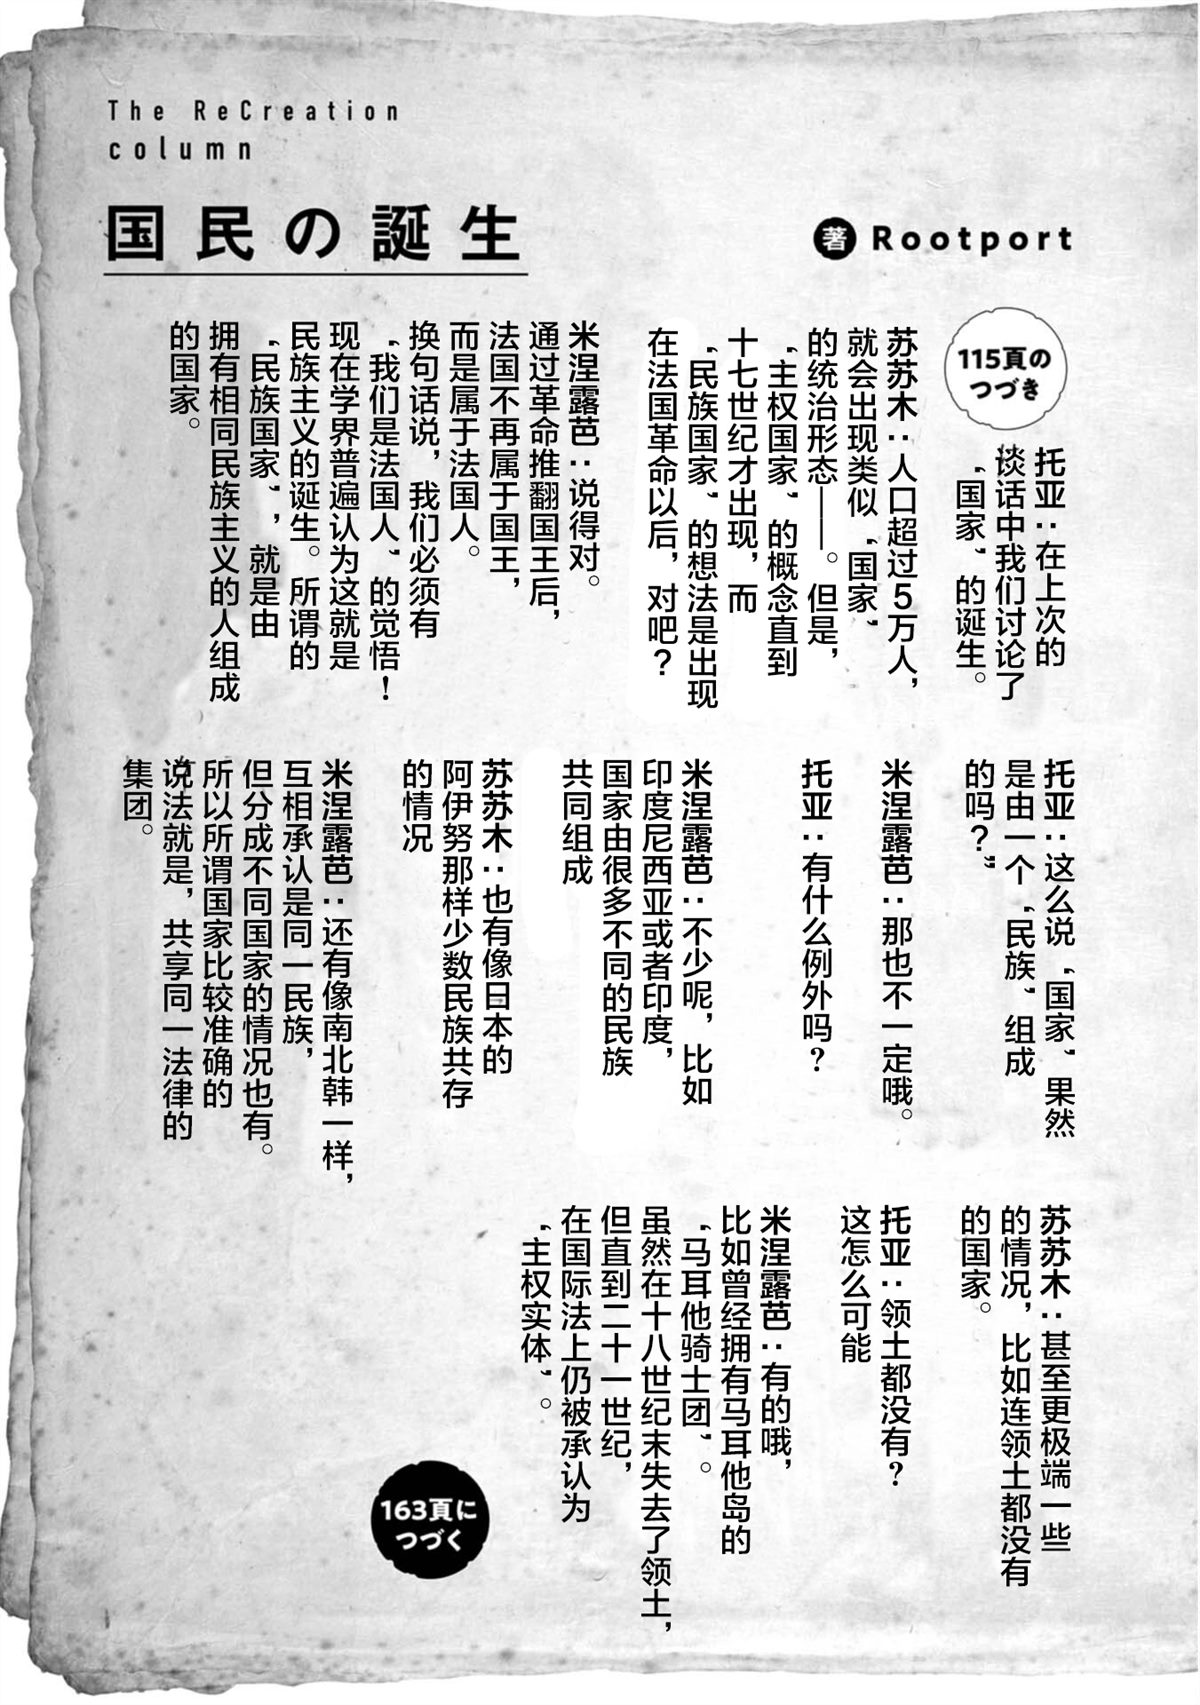 The ReCreation
column
国民の誕生
著 Rootport
115頁の
つづき
托亚：在上次的
谈话中我们讨论了
“国家”的诞生。
苏苏木：人口超过5万人，
就会出现类似“国家”
的统治形态——。但是，
“主权国家”的概念直到
十七世纪才出现，而
“民族国家”的想法是出现
在法国革命以后，对吧？
米涅露芭：说得对。
通过革命推翻国王后，
法国不再属于国王，
而是属于法国人。
换句话说，我们必须有
“我们是法国人”的觉悟！
现在学界普遍认为这就是
民族主义的诞生。所谓的
“民族国家”，就是由
拥有相同民族主义的人组成
的国家。
托亚：这么说“国家”果然
是由一个“民族”组成
的吗？”
米涅露芭：那也不一定哦。
托亚：有什么例外吗？
米涅露芭：不少呢，比如
印度尼西亚或者印度，
国家由很多不同的民族
共同组成
苏苏木：也有像日本的
阿伊努那样少数民族共存
的情况
米涅露芭：还有像南北韩一样，
互相承认是同一民族，
但分成不同国家的情况也有。
所以所谓国家比较准确的
说法就是，共享同一法律的
集团。
苏苏木：甚至更极端一些
的情况，比如连领土都没有
的国家。
托亚：领土都没有？
这怎么可能
米涅露芭：有的哦，
比如曾经拥有马耳他岛的
“马耳他骑士团”。
虽然在十八世纪末失去了领土，
但直到二十一世纪，
在国际法上仍被承认为
“主权实体”。
163頁に
つづく